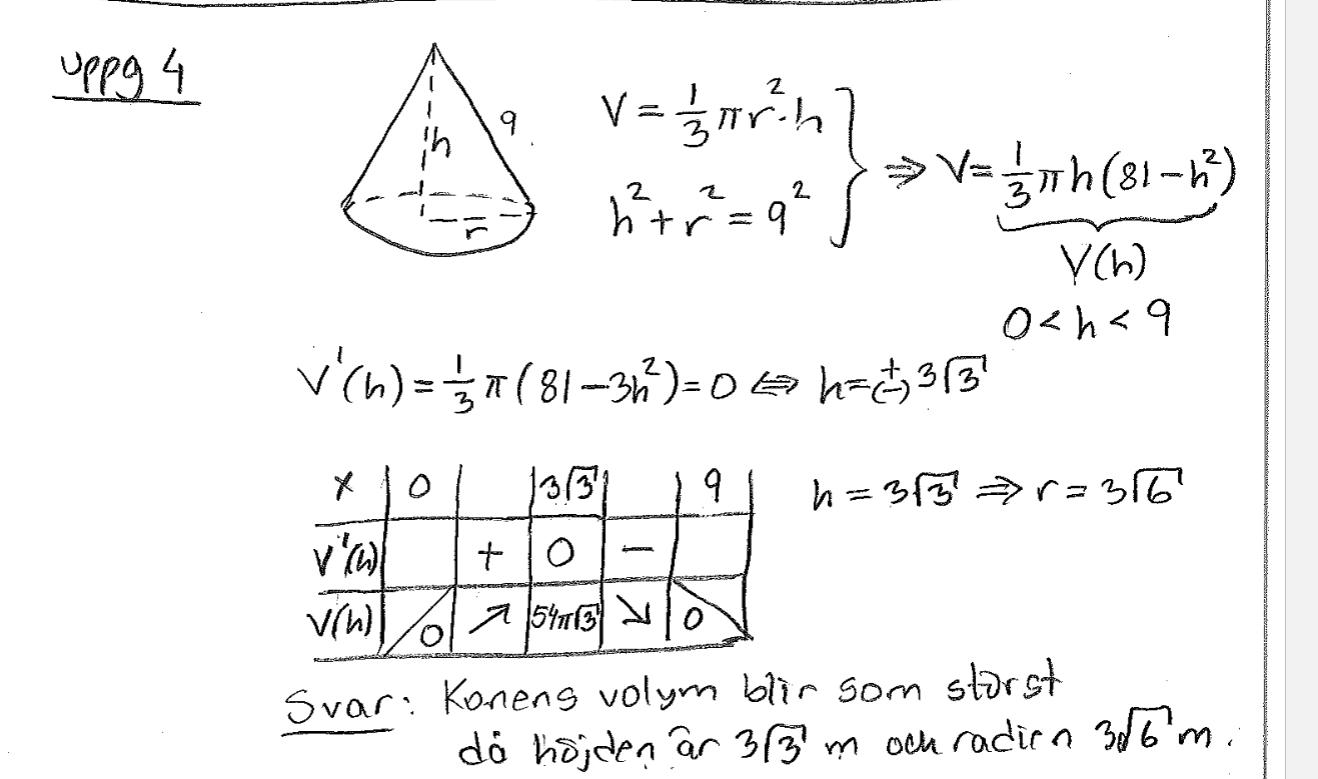 uppg 4
h 9 r
V = 1/3 πr²·h
h² + r² = 9²
⇒ V = 1/3 πh(81−h²)
V(h)
0 < h < 9
V'(h) = 1/3 π(81−3h²) = 0 ⇔ h = ±(−) 3√3
x 0 3√3 9
V'(h) + 0 −
V(h) 0 ↗ 54π√3 ↘ 0
h = 3√3 ⇒ r = 3√6
Svar: Konens volym blir som störst
då höjden är 3√3 m och radien 3√6 m.